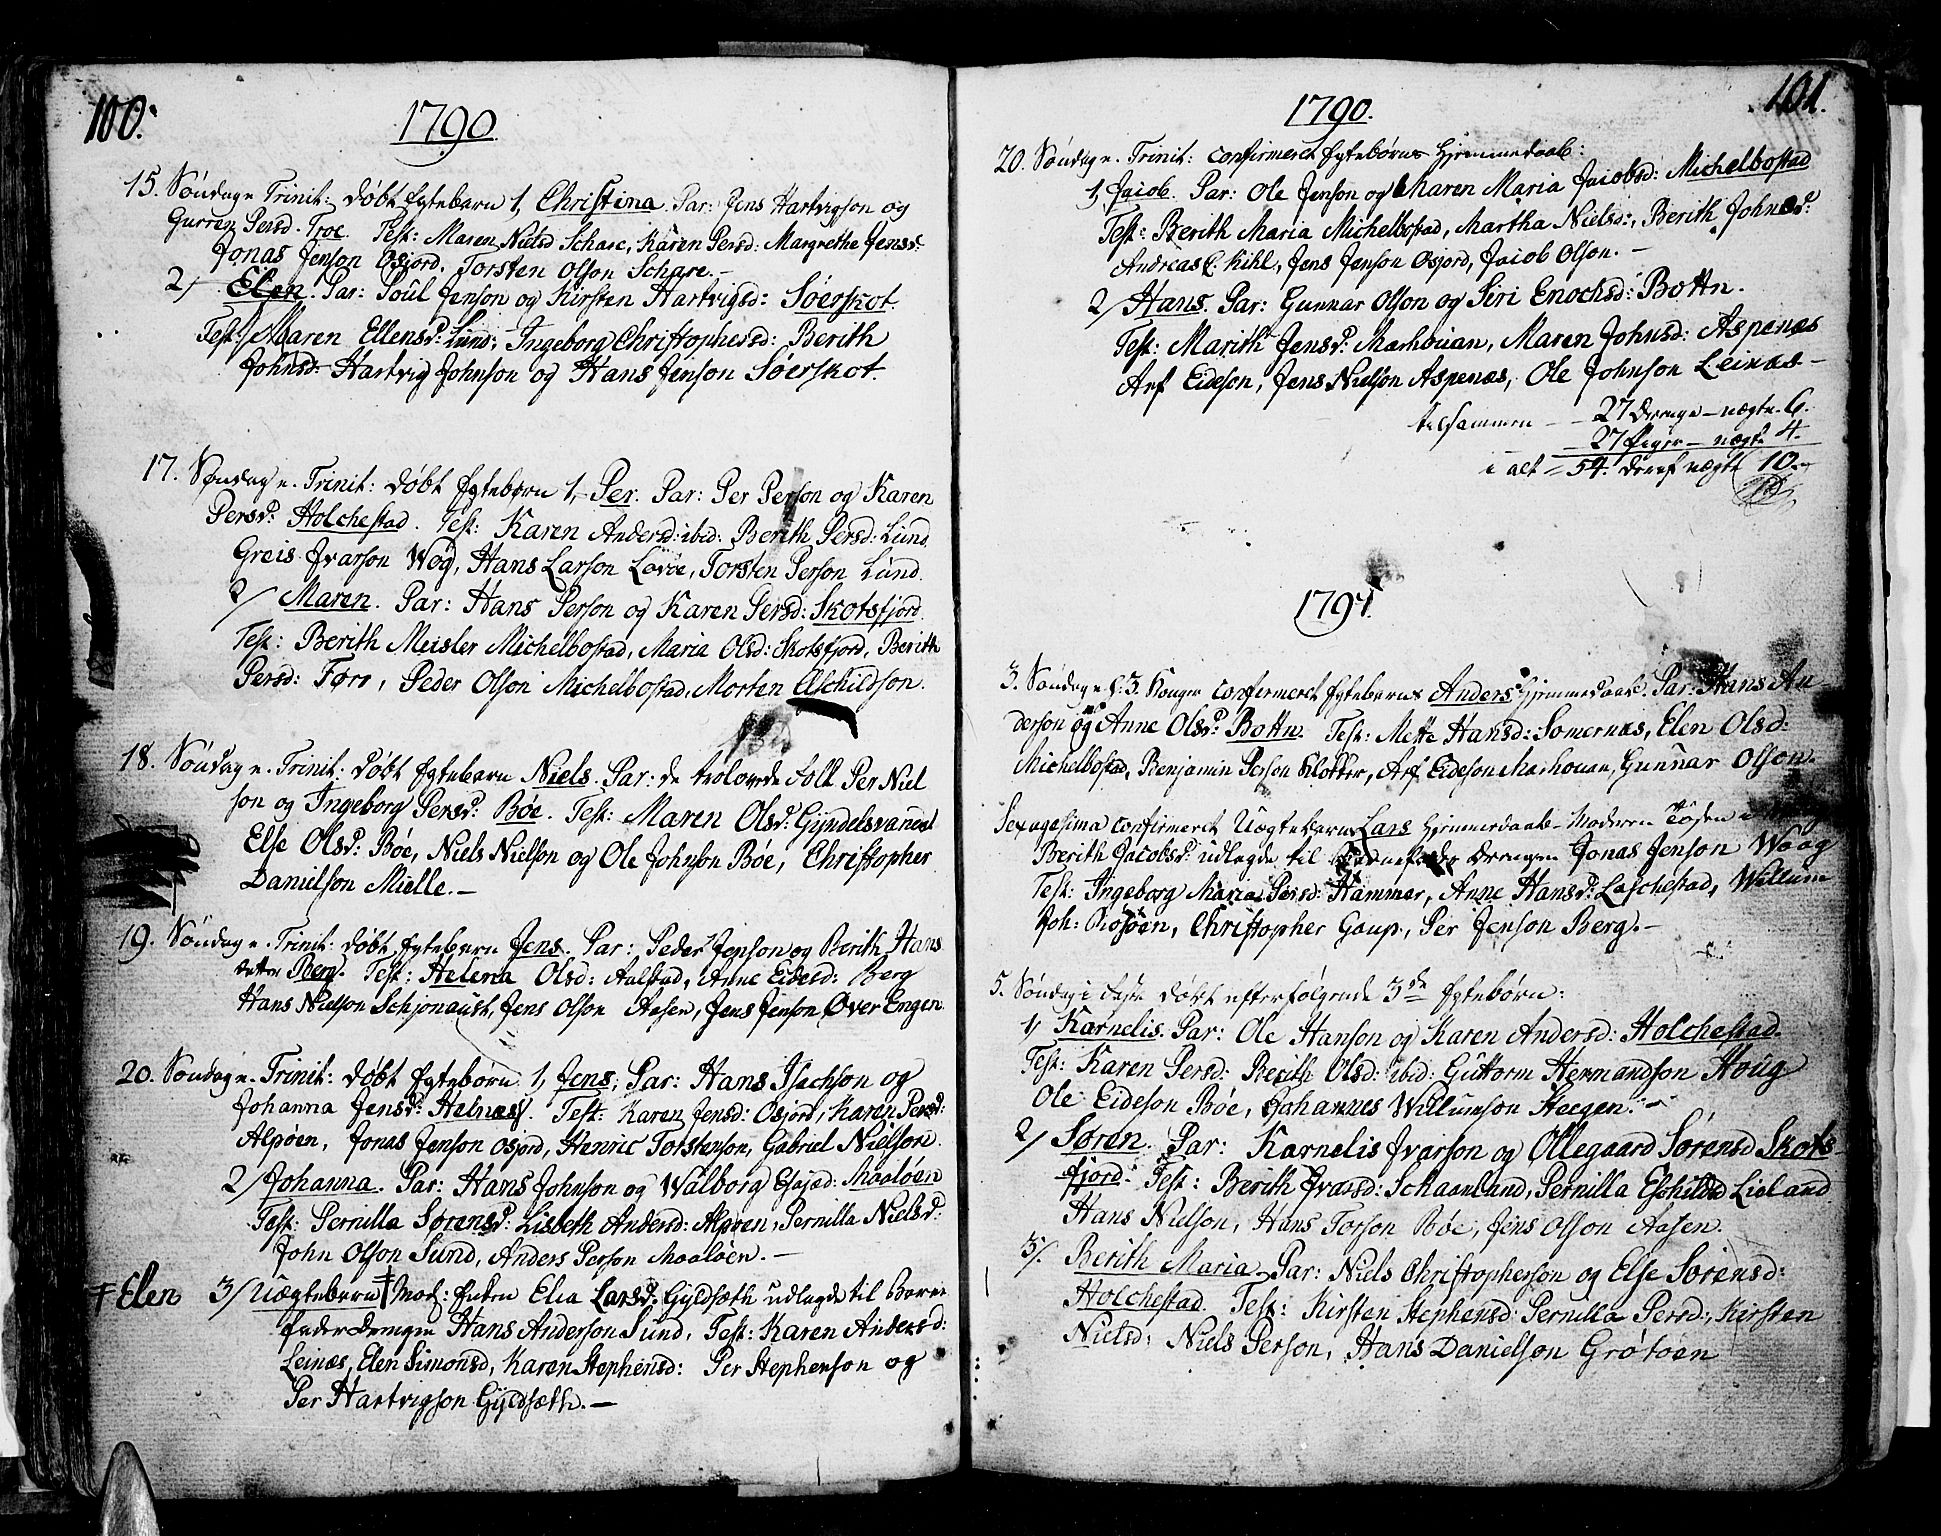 100.
1790
15. Søndag e. Trinit: døbt Egtebarn 1, Christina. Par: Jens Hartvigson og
Gurren Persd. Troe. Test: Maren Nielsd Schare, Karen Persd: Margrethe Jensd:
Jonas Jenson Osjord. Torsten Olson Schare. –
2/ Elen. Par: Poul Jenson og Kirsten Hartvigsd: Søerskot.
Test: Maren Ellensd: Sund: Ingeborg Christophersd: Berith
Johnsd. Hartvig Johnson og Hans Jenson Søerskot.
17. Søndag e. Trinit: døbt Egtebørn 1, Per. Par: Per Person og Karen
Persd: Holchestad. Test: Karen Andersd: ibid: Berith Persd: Lund
Greis Ivarson Wog, Hans Larson Lovøe, Torsten Person Lund.
2/ Maren. Par: Hans Person og Karen Persd: Skotsfjord.
Test: Berith Meisler Michelbostad, Maria Olsd: Skotsfjord, Berith
Persd: Føre, Peder Olson Michelbostad, Morten Aschildson.
18. Søndag e. Trinit: døbt Egtebarn Niels. Par: de trolovede Folk Per Niel
son og Ingeborg Persd: Bøe. Test: Maren Olsd: Gyndelsvandal
Else Olsd: Bøe, Niels Nielson og Ole Johnson Bøe, Christopher
Danielson Mielle. –
19. Søndag e. Trinit: døbt Egtebarn Jens. Par: Peder Jenson og Berith Hans
datter Berg. Test: Helena Olsd: Aalstad, Anne Eidesd: Berg
Hans Nielson Schjonaust, Jens Olson Aasen, Jens Jenson Øver Engen.
20. Søndag e. Trinit: døbt Egtebørn 1, Jens, Par: Hans Isachson og
Johanna Jensd: Helnes. Test: Karen Jensd: Osjord, Karen Persd:
Alpøen, Jonas Jenson Osjord, Henric Torstenson, Gabriel Nielson.
2/ Johanna. Par: Hans Johnson og Walborg Esajæd: Maaløen
Test: Pernilla Sørensd: Lisbeth Andersd: Alpøen, Pernilla Nielsd:
John Olson Sund, Anders Person Maaløen. –
‡ Elen 3/ Uægtebarn ‡ Mod: Enken Elia Larsd: Gyldsæth udlagde til Barne
fader Drengen Hans Anderson Sund, Test: Karen Andersd:
Leinæs, Elen Simonsd, Karen Stephensd: Per Stephenson og
Per Hartvigson Gyldsæth. –
101.
1790.
20. Søndag e. Trinit: confirmeret Egtebørns Hjemmedaab:
1, Jacob. Par: Ole Jenson og Maren Maria Jacobsd: Michelbostad
Test: Berith Maria Michelbostad, Martha Nielsd:, Berith Johnsd:
Andreas C. Kihl, Jens Jenson Osjord, Jacob Olson. –
2/ Hans. Par: Gunnar Olson og Siri Enochsd: Bottn.
Test: Marith Jensd: Marhouan, Maren Johnsd: Aspenæs
Arf Eideson, Jens Nielson Aspenæs, Ole Johnson Leinæs –
tilsammen – 27 Drenge – uægte 6.
27 Piger – uægt. 4.
i alt = 54. deraf uægte 10.
1791.
3. Søndag e. H: 3. Konger confirmeret Egtebarns Anders Hjemmedaab. Par: Hans An
derson og Anne Olsd: Bottn. Test: Mette Hansd: Somernæs, Elen Olsd:
Michelbostad, Benjamin Person Klokker, Arf Eideson Marhouan, Gunnar Olson.
Sexagesima confirmeret Uægtebarns Lars Hjemmedaab. Moderen Tøsen
Berith Jacobsd: udlagde til Barnefader Drengen Jonas Jenson Waag
Test: Ingeborg Maria Persd: Hammer, Anne Hansd: Laschestad, Willum
Joh: Rosøen, Christopher Gaup, Per Jenson Berg. –
5. Søndag i Faste døbt efterfølgende 3de Egtebørn:
1, Karnelis. Par: Ole Hanson og Karen Andersd: Holchestad.
Test: Karen Persd: Berith Olsd: ibid: Guttorm Hermandson Houg
Ole Eideson Bøe, Johannes Willumson Heegen. –
2/ Søren. Par: Karnelis Ivarson og Ollegaard Sørensd Skots
fjord. Test: Berith Ivarsd: Schaanland, Pernilla Eschildsd Lieland
Hans Nielson, Hans Torson Bøe, Jens Olson Aasen.
3/ Berith Maria. Par: Niels Christopherson og Else Sørensd:
Holchestad. Test: Kirsten Stephensd: Pernilla Persd:, Kirsten
Nielsd: Niels Person, Hans Danielson Grøtøen